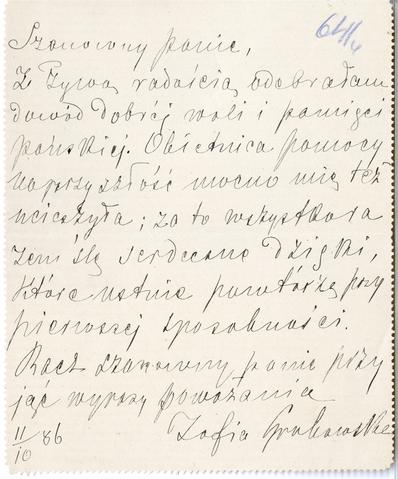 64 1/4
Szanowny panie,
Z żywą radością odebrałam
dowód dobréj woli i pamięci
pańskiej. Obietnica pomocy
na przyszłość mocno mię też
ucieszyła; za to wszystko ra
zem ślę serdeczne dzięki,
które ustnie powtórzę przy
pierwszej sposobności.
Racz szanowny panie przy
jąć wyrazy poważania
11/10 86
Zofia Grabowska